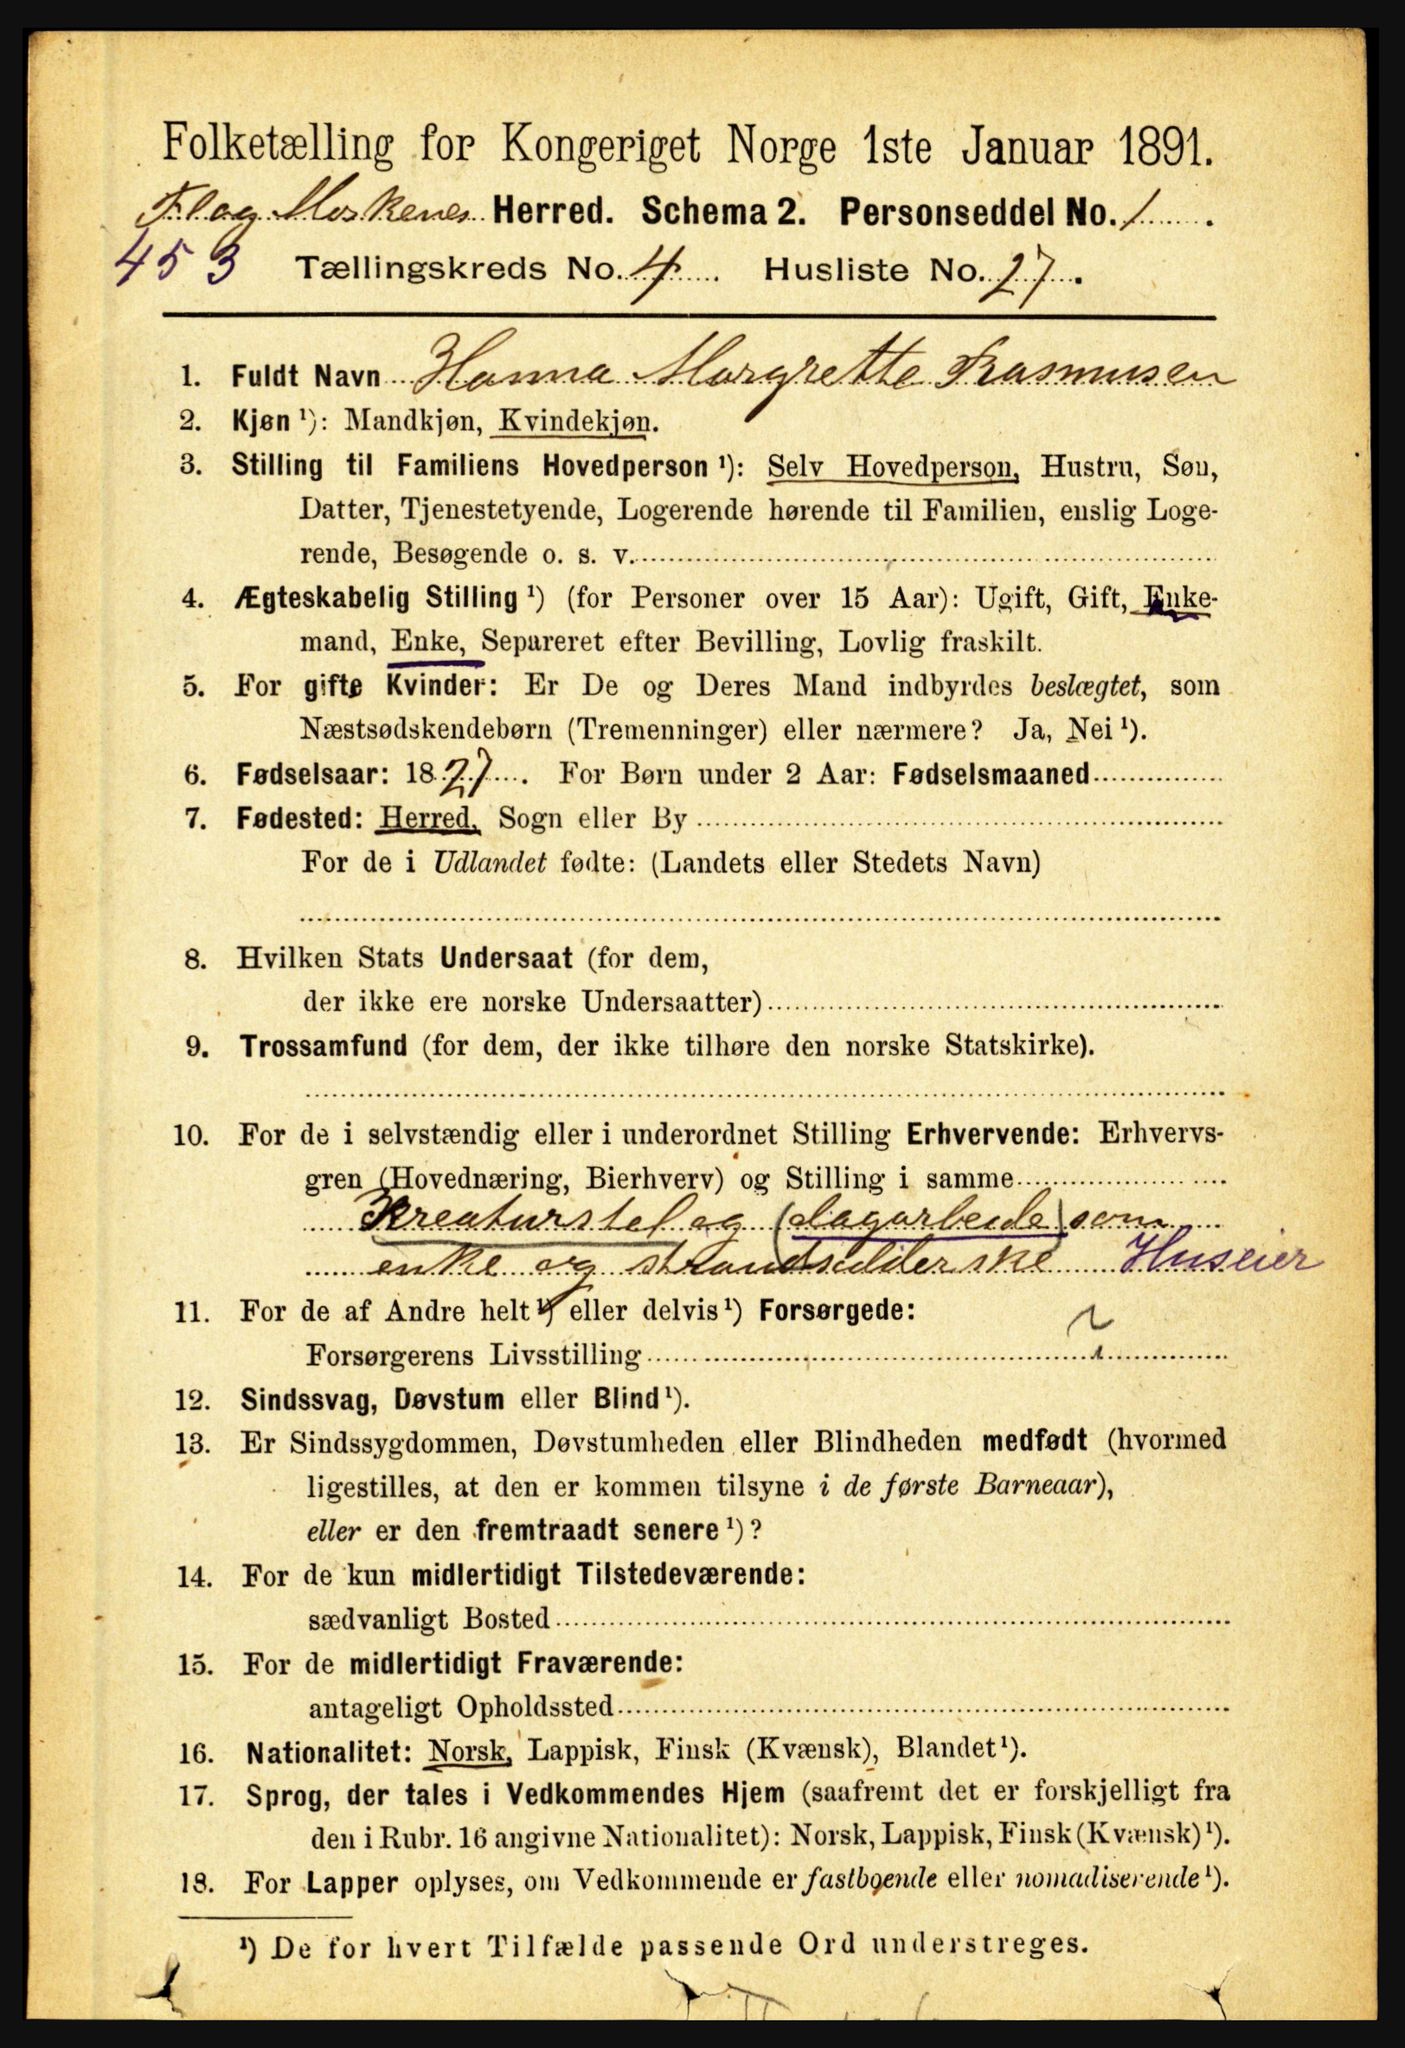 Folketælling for Kongeriget Norge 1ste Januar 1891.
Fl. og Moskenes Herred. Schema 2. Personseddel No. 1.
453 Tællingskreds No. 4 Husliste No. 27.
1. Fuldt Navn Hanna Margrette Rasmusen
2. Kjøn ¹): Mandkjøn, Kvindekjøn.
3. Stilling til Familiens Hovedperson ¹): Selv Hovedperson, Hustru, Søn,
Datter, Tjenestetyende, Logerende hørende til Familien, enslig Loge-
rende, Besøgende o. s. v.
4. Ægteskabelig Stilling ¹) (for Personer over 15 Aar): Ugift, Gift, Enke-
mand, Enke, Separeret efter Bevilling, Lovlig fraskilt.
5. For gifte Kvinder: Er De og Deres Mand indbyrdes beslægtet, som
Næstsødskendebørn (Tremenninger) eller nærmere? Ja, Nei ¹).
6. Fødselsaar: 1827. For Børn under 2 Aar: Fødselsmaaned
7. Fødested: Herred, Sogn eller By
For de i Udlandet fødte: (Landets eller Stedets Navn)
8. Hvilken Stats Undersaat (for dem,
der ikke ere norske Undersaatter)
9. Trossamfund (for dem, der ikke tilhøre den norske Statskirke).
10. For de i selvstændig eller i underordnet Stilling Erhvervende: Erhvervs-
gren (Hovednæring, Bierhverv) og Stilling i samme
Kreaturstel og (dagarbeide) som
enke og strandsidderske Huseier
11. For de af Andre helt ¹) eller delvis ¹) Forsørgede:
Forsørgerens Livsstilling
12. Sindssvag, Døvstum eller Blind ¹).
13. Er Sindssygdommen, Døvstumheden eller Blindheden medfødt (hvormed
ligestilles, at den er kommen tilsyne i de første Barneaar),
eller er den fremtraadt senere ¹)?
14. For de kun midlertidigt Tilstedeværende:
sædvanligt Bosted
15. For de midlertidigt Fraværende:
antageligt Opholdssted
16. Nationalitet: Norsk, Lappisk, Finsk (Kvænsk), Blandet ¹).
17. Sprog, der tales i Vedkommendes Hjem (saafremt det er forskjelligt fra
den i Rubr. 16 angivne Nationalitet): Norsk, Lappisk, Finsk (Kvænsk) ¹).
18. For Lapper oplyses, om Vedkommende er fastboende eller nomadiserende ¹).
¹) De for hvert Tilfælde passende Ord understreges.